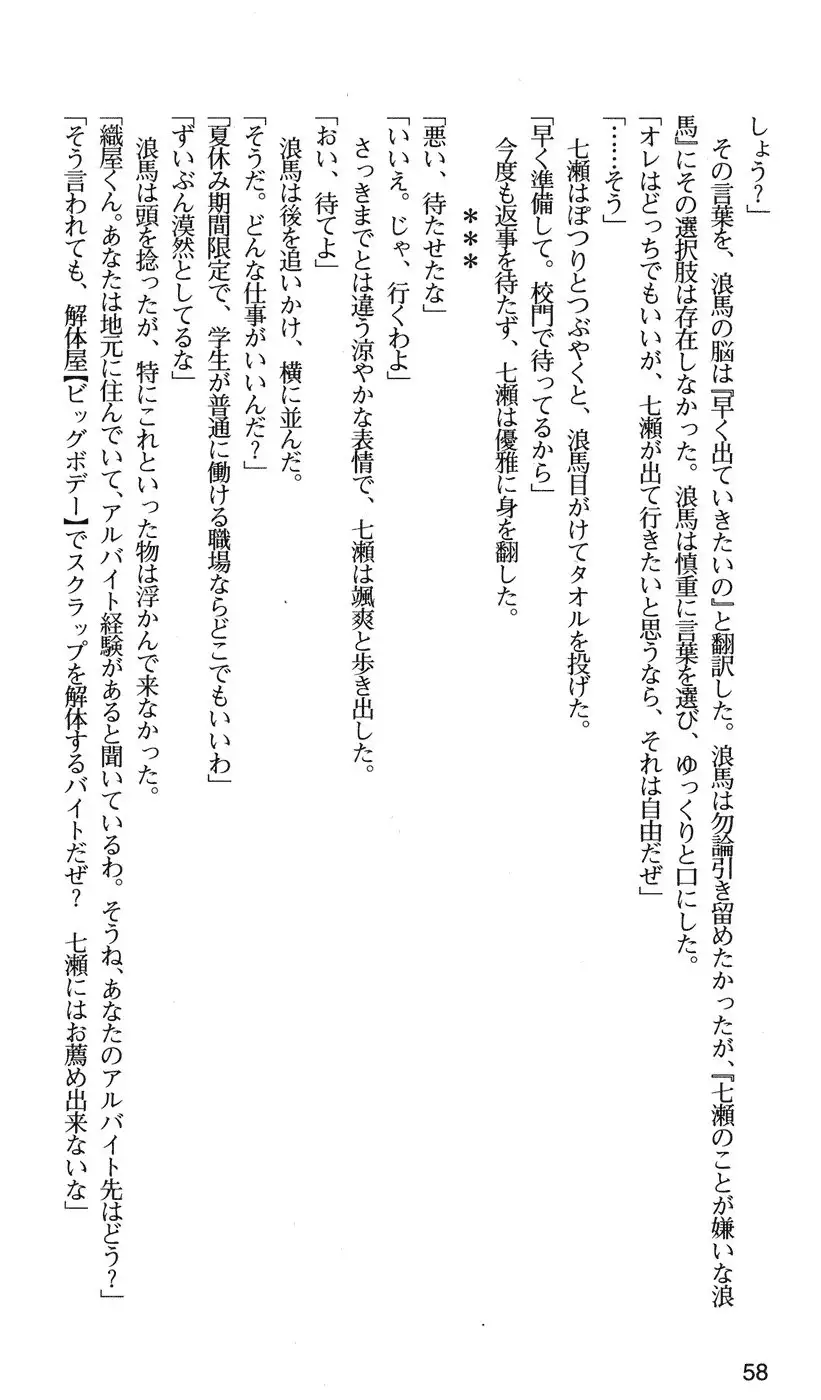 しょう？」
　その言葉を、浪馬の脳は『早く出ていきたいの』と翻訳した。浪馬は勿論引き留めたかったが、『七瀬のことが嫌いな浪
馬』にその選択肢は存在しなかった。浪馬は慎重に言葉を選び、ゆっくりと口にした。
「オレはどっちでもいいが、七瀬が出て行きたいと思うなら、それは自由だぜ」
「……そう」
　七瀬はぽつりとつぶやくと、浪馬目がけてタオルを投げた。
「早く準備して。校門で待ってるから」
　今度も返事を待たず、七瀬は優雅に身を翻した。
＊＊＊
「悪い、待たせたな」
「いいえ。じゃ、行くわよ」
　さっきまでとは違う涼やかな表情で、七瀬は颯爽と歩き出した。
「おい、待てよ」
　浪馬は後を追いかけ、横に並んだ。
「そうだ。どんな仕事がいいんだ？」
「夏休み期間限定で、学生が普通に働ける職場ならどこでもいいわ」
「ずいぶん漠然としてるな」
　浪馬は頭を捻ったが、特にこれといった物は浮かんで来なかった。
「織屋くん。あなたは地元に住んでいて、アルバイト経験があると聞いているわ。そうね、あなたのアルバイト先はどう？」
「そう言われても、解体屋【ビッグボデー】でスクラップを解体するバイトだぜ？　七瀬にはお薦め出来ないな」
58